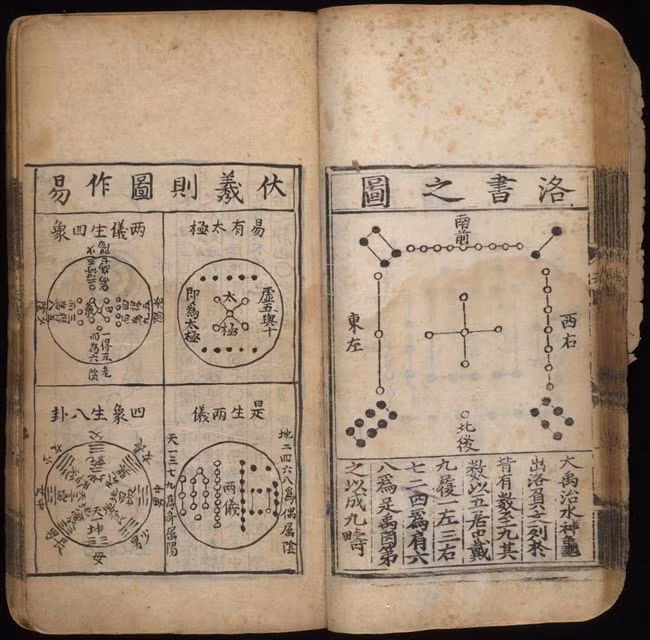 洛書之圖
南前
西右
東左
北後
大禹治水神龜
出洛負文列於
背有數至九其
數以五居中戴
九履一左三右
七二四爲肩六
八爲足禹因第
之以成九疇
伏羲則圖作易
易有太極
虛五與十
太極
即爲太極
兩儀生四象
一得五
而爲六
老陰
是生兩儀
地二四六八爲偶屬陰
兩儀
天一三七九爲奇屬陽
四象生八卦
乾父
坤
母